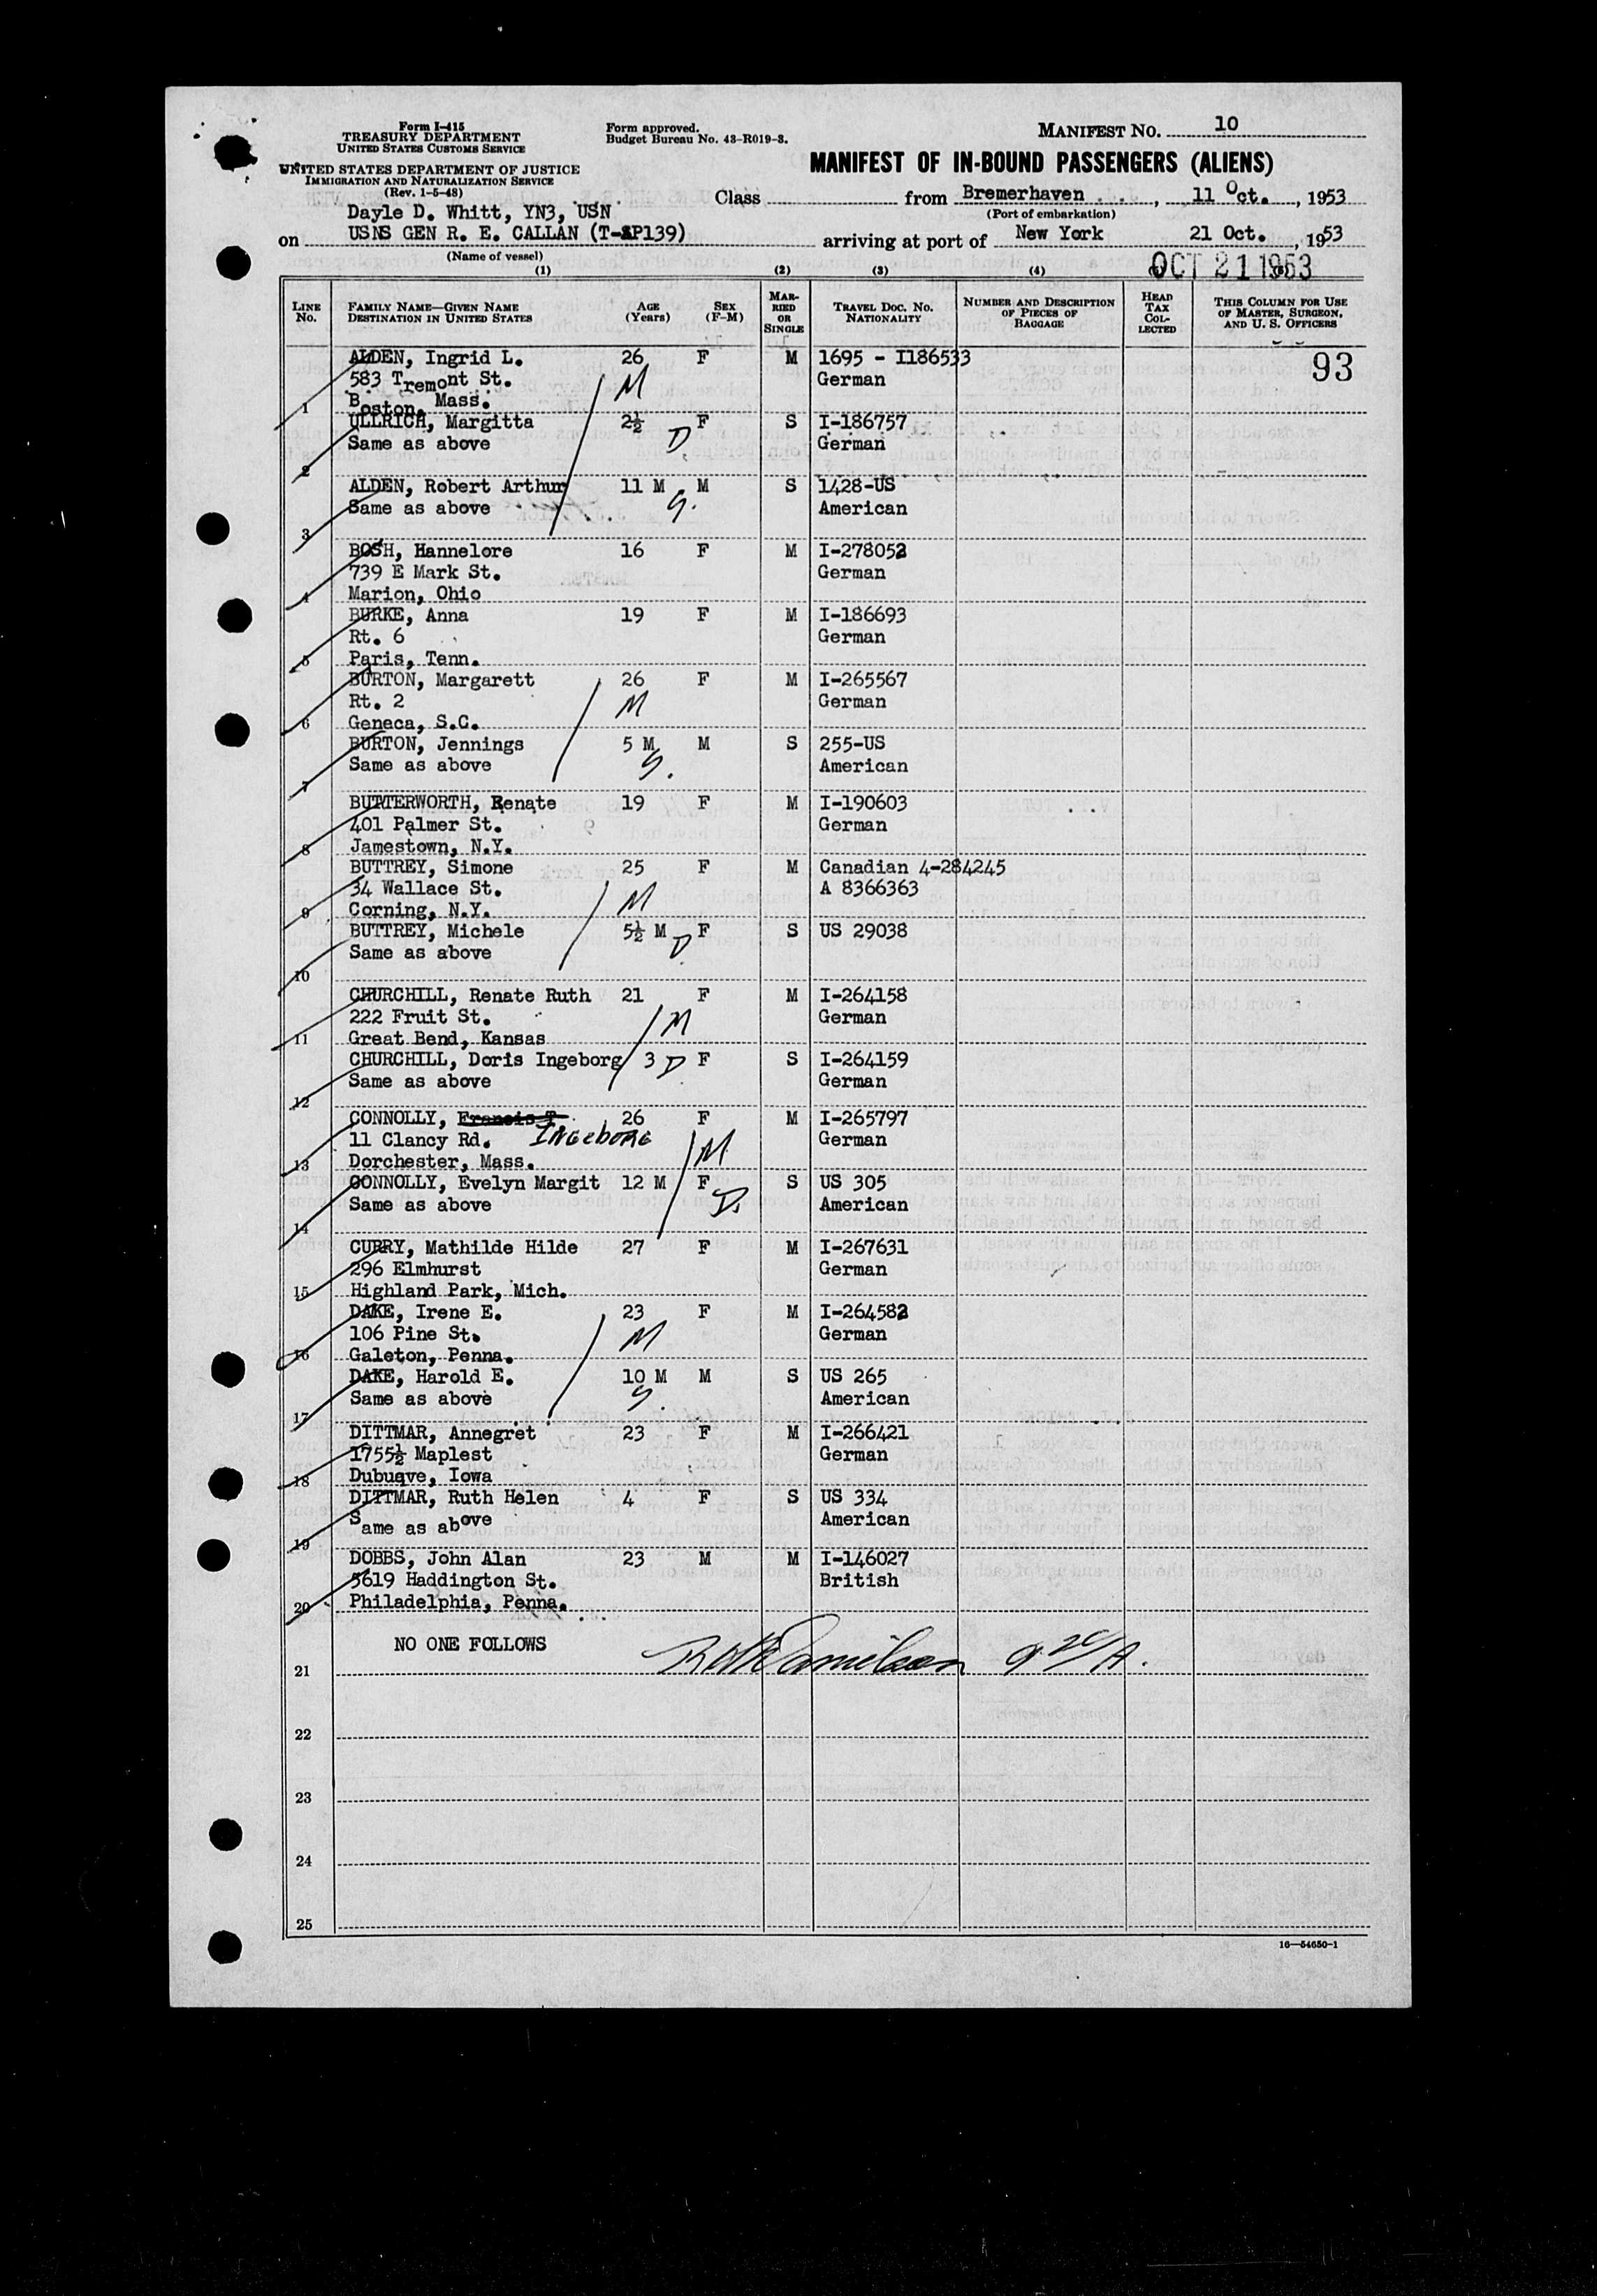 Form I-415
TREASURY DEPARTMENT
UNITED STATES CUSTOMS SERVICE
UNITED STATES DEPARTMENT OF JUSTICE
IMMIGRATION AND NATURALIZATION SERVICE
(Rev. 1-5-48)
Form approved.
Budget Bureau No. 43-R019-3.
MANIFEST NO. 10
MANIFEST OF IN-BOUND PASSENGERS (ALIENS)
Class from Bremerhaven, 11 Oct., 1953
(Port of embarkation)
Dayle D. Whitt, YN3, USN
on USNS GEN R. E. CALLAN (T-AP139) arriving at port of New York 21 Oct., 1953
(Name of vessel)
OCT 21 1953
(1) (2) (3) (4)
LINE No. FAMILY NAME—GIVEN NAME DESTINATION IN UNITED STATES AGE (Years) SEX (F-M) MARRIED OR SINGLE TRAVEL DOC. NO. NATIONALITY NUMBER AND DESCRIPTION OF PIECES OF BAGGAGE HEAD TAX COLLECTED THIS COLUMN FOR USE OF MASTER, SURGEON, AND U. S. OFFICERS
93
ALDEN, Ingrid L. 26 F M 1695 - I186533
583 Tremont St. M German
1 Boston, Mass.
ULLRICH, Margitta 2½ F S I-186757
Same as above D German
2
ALDEN, Robert Arthur 11 M M S 1428-US
Same as above S. American
3
BOSH, Hannelore 16 F M I-278052
739 E Mark St. German
4 Marion, Ohio
BURKE, Anna 19 F M I-186693
Rt. 6 German
5 Paris, Tenn.
BURTON, Margarett 26 F M I-265567
Rt. 2 M German
6 Geneca, S.C.
BURTON, Jennings 5 M M S 255-US
Same as above S. American
7
BUTTERWORTH, Renate 19 F M I-190603
401 Palmer St. German
8 Jamestown, N.Y.
BUTTREY, Simone 25 F M Canadian 4-284245
34 Wallace St. M A 8366363
9 Corning, N.Y.
BUTTREY, Michele 5½ M F S US 29038
Same as above D
10
CHURCHILL, Renate Ruth 21 F M I-264158
222 Fruit St. M German
11 Great Bend, Kansas
CHURCHILL, Doris Ingeborg 3 D F S I-264159
Same as above German
12
CONNOLLY, Francis T. 26 F M I-265797
11 Clancy Rd. INGEBORG M German
13 Dorchester, Mass.
CONNOLLY, Evelyn Margit 12 M F S US 305
Same as above D. American
14
CURRY, Mathilde Hilde 27 F M I-267631
296 Elmhurst German
15 Highland Park, Mich.
DAKE, Irene E. 23 F M I-264582
106 Pine St. M German
16 Galeton, Penna.
DAKE, Harold E. 10 M M S US 265
Same as above S. American
17
DITTMAR, Annegret 23 F M I-266421
1755½ Maplest German
18 Dubuqve, Iowa
DITTMAR, Ruth Helen 4 F S US 334
Same as above American
19
DOBBS, John Alan 23 M M I-146027
5619 Haddington St. British
20 Philadelphia, Penna.
NO ONE FOLLOWS
21
22
23
24
25
16—54650-1